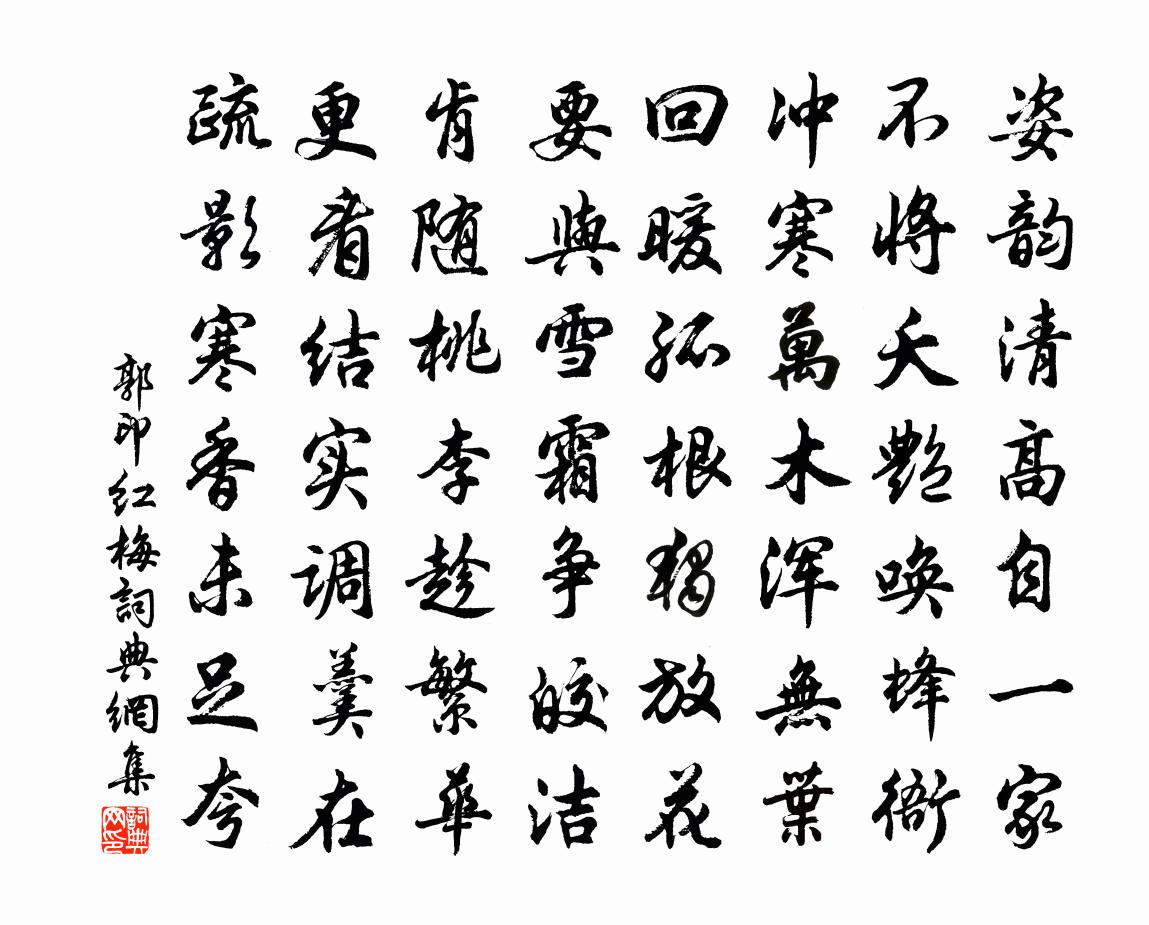 姿韵清高自一家
不将夭艷唤蜂衙
冲寒萬木浑無葉
回暖孤根獨放花
要與雪霜争皎洁
肯随桃李趁繁華
更看结实调羹在
疏影寒香未足夸
郭印红梅詞典網集
詞典网印